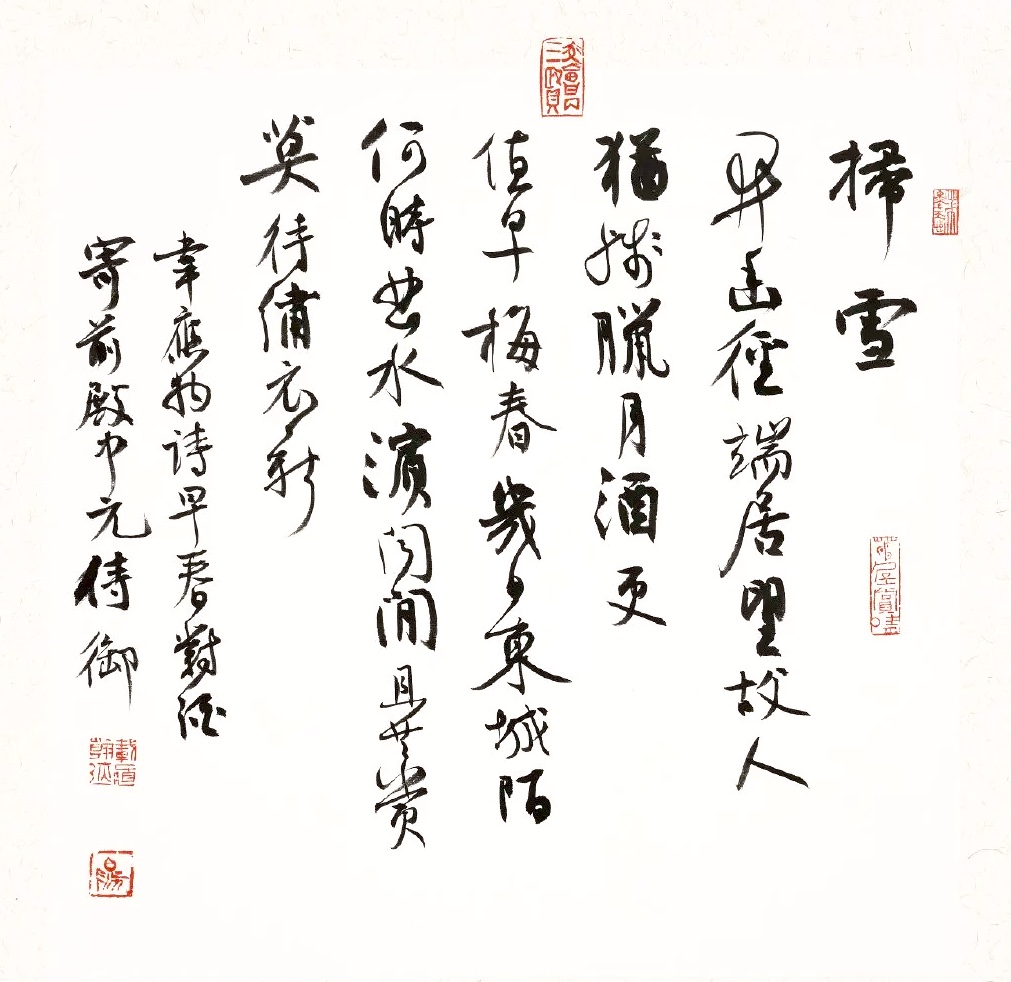 掃雪
開幽徑端居望故人
猶殘臘月酒更
值早梅春幾日東城陌
何時曲水濱聞閒且共賞
莫待繡衣新
韋應物詩早春對
寄前殿中元侍御